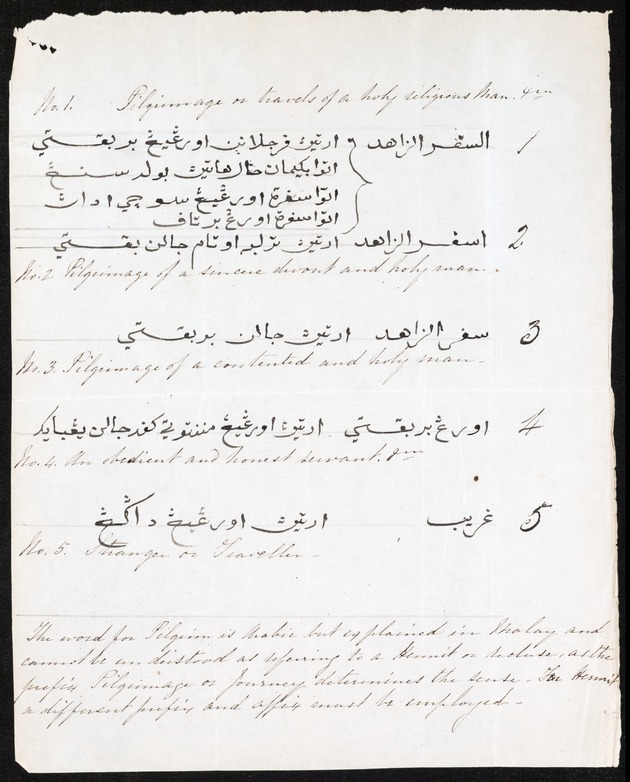 No. 1. Pilgrimage or travels of a holy religious Man.
1 السفر الزاهد ارتيڽ فرجلانن اورڠيڠ بربقتي
اتوا حال هاتيڽ
اتوا سفرة اورڠيڠ سوچي
اتوا سفرة اورڠ برتاف
2 اسفر الزاهد ارتيڽ ترلبه اوتام جالن بقتي
No. 2. Pilgrimage of a sincere devout and holy man.
3 سفر الزاهد ارتيڽ جالن بربقتي
No. 3. Pilgrimage of a contented and holy man.
4 اورڠ بربقتي ارتيڽ اورڠيڠ كفد جالن يڠبايك
No. 4. An obedient and honest servant.
5 غريب ارتيڽ اورڠيڠ داڬڠ
No. 5. Stranger or Traveller
The word for Pilgrim is Arabic but explained in Malay and
cannot be understood as referring to a Hermit or recluse, as the
prefix Pilgrimage or Journey determines the sense - For Hermit
a different prefix and affix must be employed -